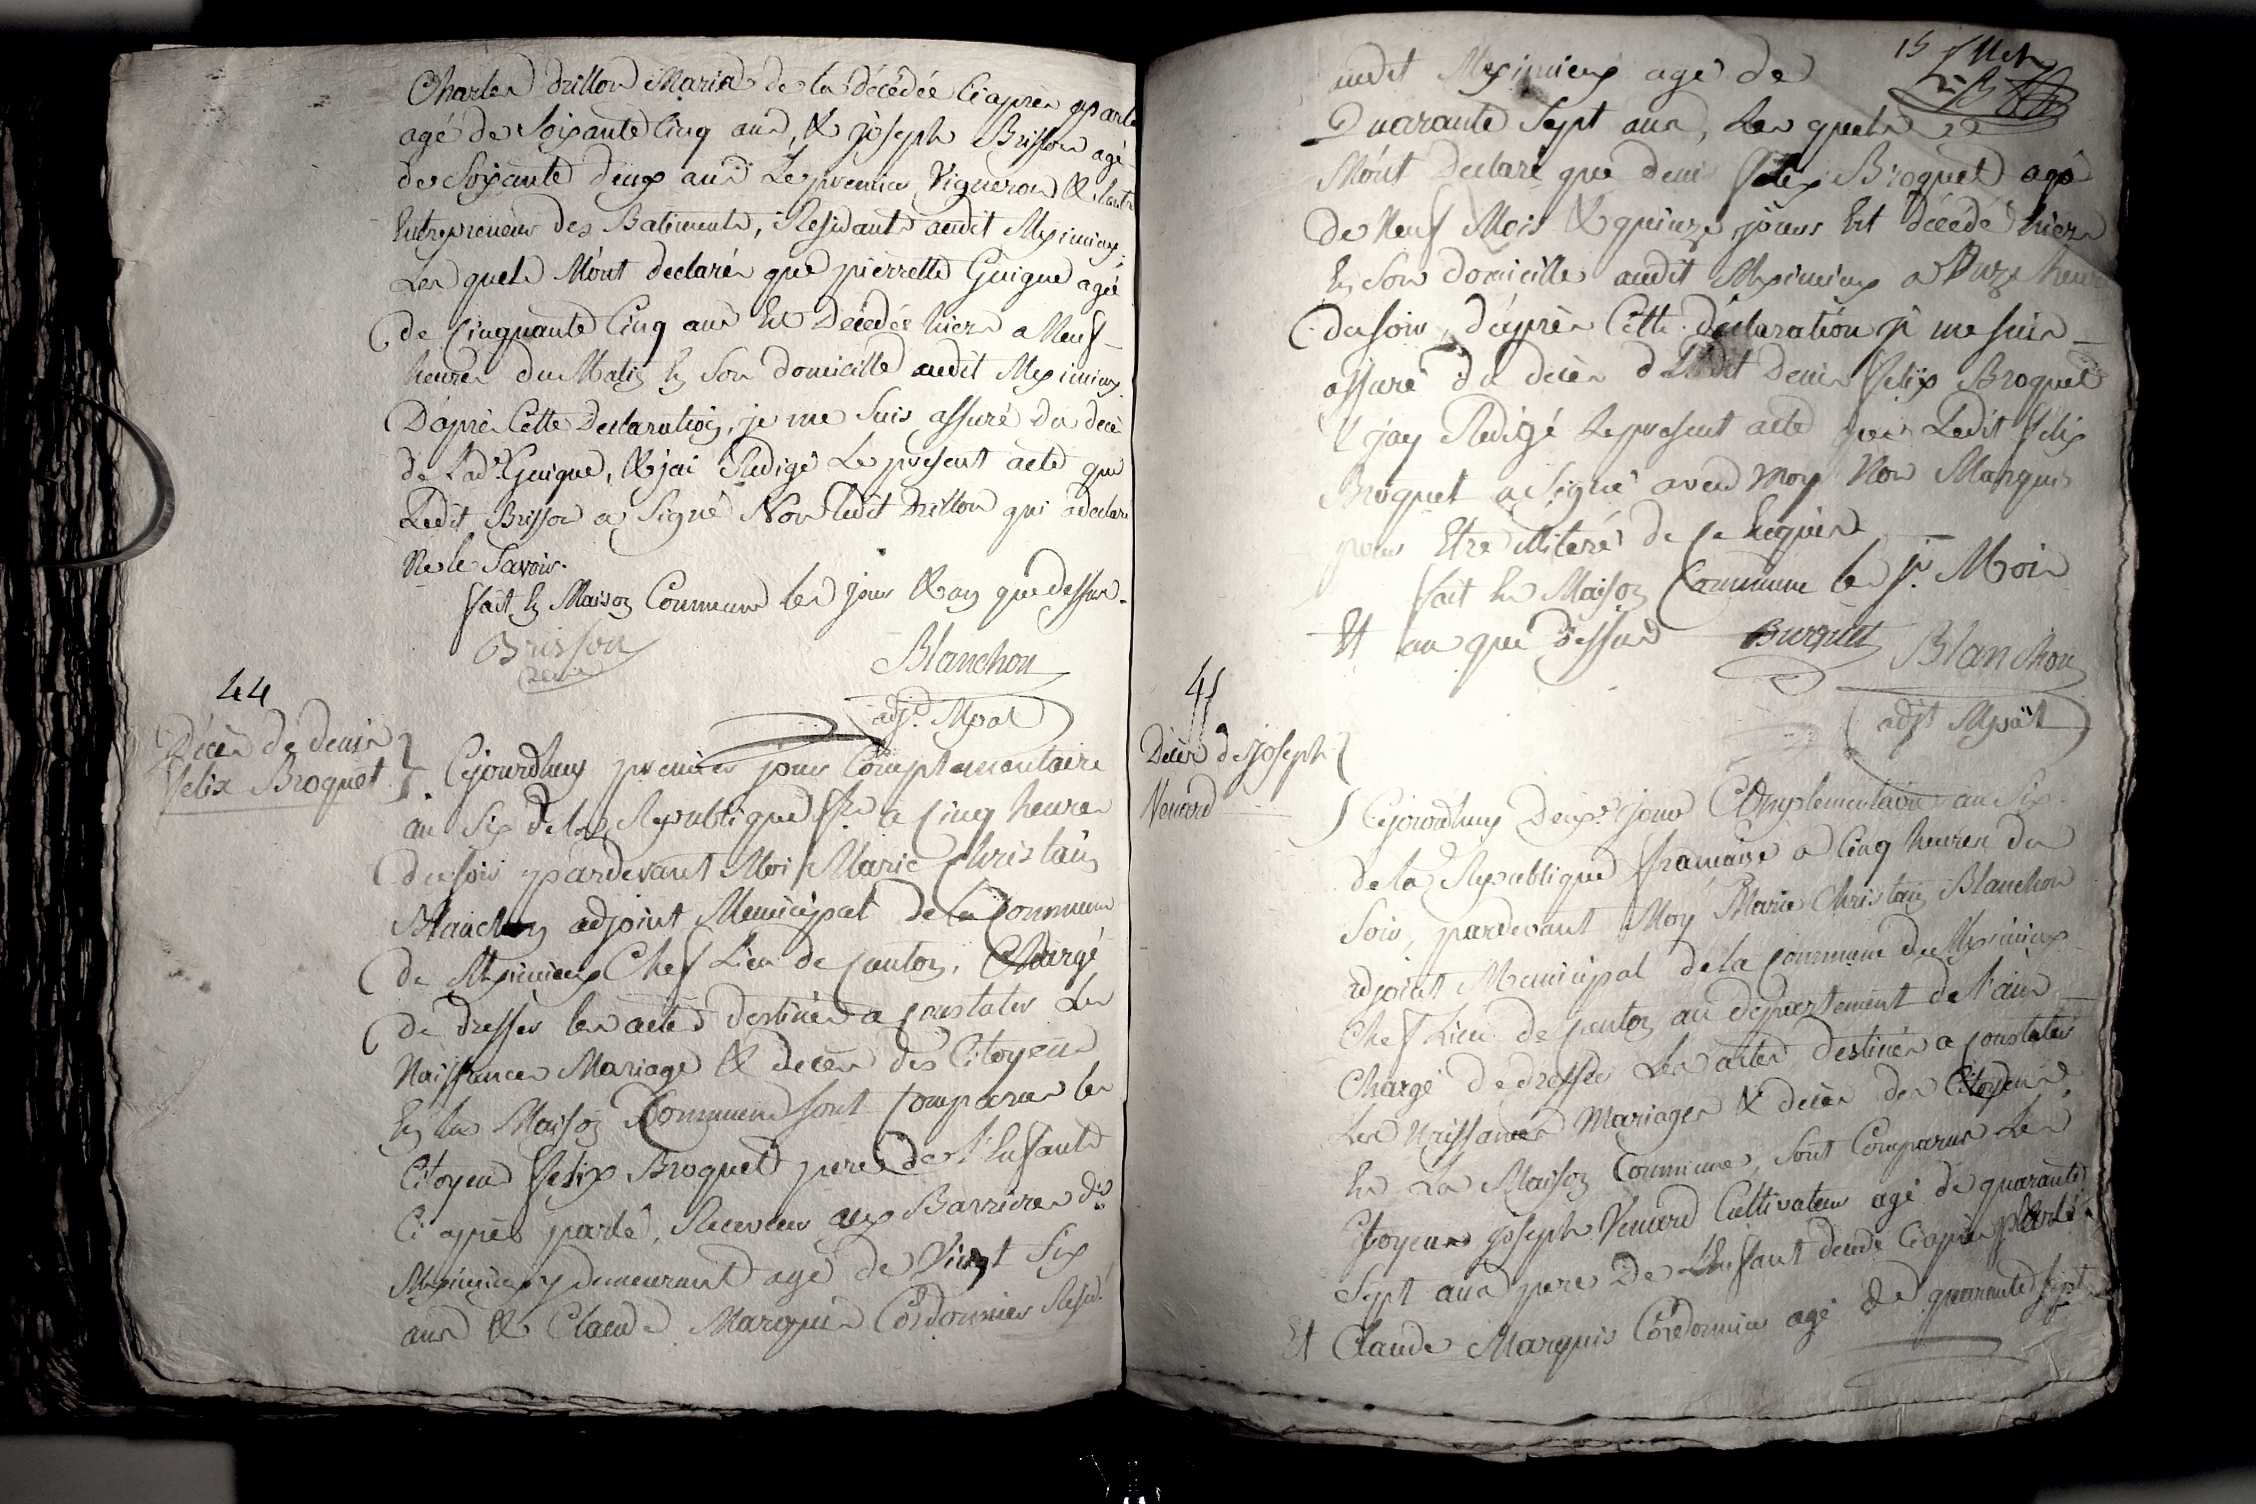 Charles Drillon Maria de la décédée Ciaprès parlé
agé de Soixante Cinq ans, & joseph Brisson agé
de Soixante deux ans Le premier Vigneron & l'autre
Entrepreneur des Batiments, Residants audit Meximieux,
Les quels M'ont declarés que pierrette Guigue agée
de Cinquante Cinq ans Est Décédée hiers a Neuf
heures du Matin En Son domicille audit Meximieux
D'après Cette Declaration, je me Suis assuré du decè
de Lad.e Guigue, & jai Redigé Le present acte que
Ledit Brisson a Signé Non Ledit Drillon qui a declaré
Ne le Savoir.
fait En Maison Commune les jour & an que dessus.
Brisson
Blanchon
adj.t Mpal
44
Décès de denis
felix Broquet
Cejourdhuy premier jour Complemantaire
an Six de la Republique fse a Cinq heures
du soir pardevant Moi Marie Christain
Blanchon adjoint Municipal de la Commune
de Meximieux Chef Lieu de Canton, Chargé
de dresser les actes destinés a Constater Les
Naissances Mariage & decès des Citoyens
En la Maison Commune sont Comparus les
Citoyens felix Broquet pere de l'Enfant
Ci après parlé, Receveur aux Barrieres de
Meximieux y demeurant agé de Vingt Six
ans & Claude Marquis Cordonnier Resid.t
15
audit Meximieux agé de
Quarante Sept ans, Les quels
M'ont Declaré que denis felix Broquet agé
de Neuf Mois & quinze jours Est Décédé hiers
En Son domicille audit Meximieux a Onze heures
du soir, d'après Cette déclaration je me suis
assuré du decès dudit Denis felix Broquet
& jay Redigé Le present acte que Ledit felix
Broquet a Signé avec Moy Non Marquis
pour Etre illiteré de Ce Enquis
fait En Maison Commune les jr. Mois
Et an que dessus
Burquet
Blanchon
adjt Mpal
45
Décès de Joseph
Venard
Cejourdhuy Deuxe. jour Complementaire an Six
de la Republique francaise a Cinq heures du
Soir, pardevant Moy Marie Christain Blanchon
adjoint Municipal de la Commune de Meximieux
Chef Lieu de Canton au departement de l'ain
Chargé de dresser Les actes destinés a Constater
Les Naissances Mariages & decès des Citoyens,
En La Maison Commune, Sont Comparus Les
Citoyens joseph Venard Cultivateur agé de quarante
Sept ans pere de L'Enfant décédé Ciaprès parlé
Et Claude Marquis Cordonnier agé de quarante sept